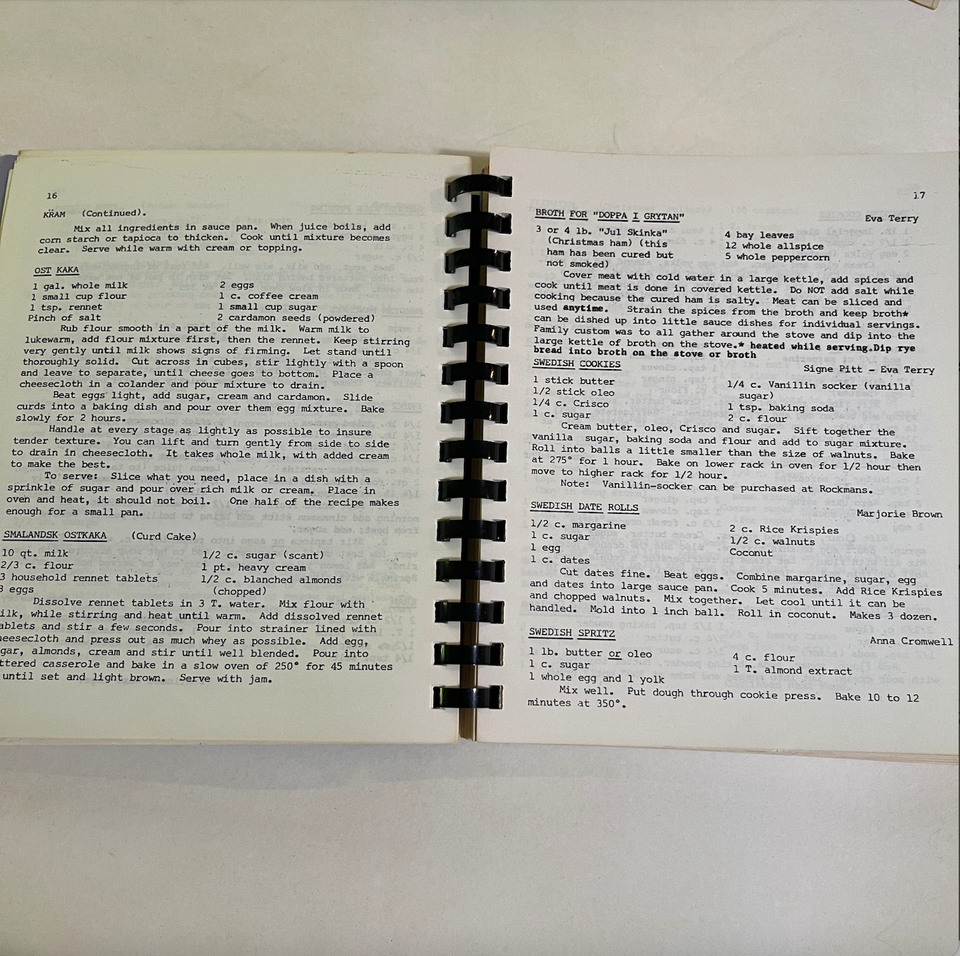 16
KRAM (Continued).
Mix all ingredients in sauce pan. When juice boils, add
corn starch or tapioca to thicken. Cook until mixture becomes
clear. Serve while warm with cream or topping.
OST KAKA
1 gal. whole milk 2 eggs
1 small cup flour 1 c. coffee cream
1 tsp. rennet 1 small cup sugar
Pinch of salt 2 cardamon seeds (powdered)
Rub flour smooth in a part of the milk. Warm milk to
lukewarm, add flour mixture first, then the rennet. Keep stirring
very gently until milk shows signs of firming. Let stand until
thoroughly solid. Cut across in cubes, stir lightly with a spoon
and leave to separate, until cheese goes to bottom. Place a
cheesecloth in a colander and pour mixture to drain.
Beat eggs light, add sugar, cream and cardamon. Slide
curds into a baking dish and pour over them egg mixture. Bake
slowly for 2 hours.
Handle at every stage as lightly as possible to insure
tender texture. You can lift and turn gently from side to side
to drain in cheesecloth. It takes whole milk, with added cream
to make the best.
To serve: Slice what you need, place in a dish with a
sprinkle of sugar and pour over rich milk or cream. Place in
oven and heat, it should not boil. One half of the recipe makes
enough for a small pan.
SMALANDSK OSTKAKA (Curd Cake)
10 qt. milk 1/2 c. sugar (scant)
2/3 c. flour 1 pt. heavy cream
3 household rennet tablets 1/2 c. blanched almonds
3 eggs (chopped)
Dissolve rennet tablets in 3 T. water. Mix flour with
ilk, while stirring and heat until warm. Add dissolved rennet
ablets and stir a few seconds. Pour into strainer lined with
heesecloth and press out as much whey as possible. Add egg,
gar, almonds, cream and stir until well blended. Pour into
ttered casserole and bake in a slow oven of 250° for 45 minutes
until set and light brown. Serve with jam.
17
BROTH FOR "DOPPA I GRYTAN" Eva Terry
3 or 4 lb. "Jul Skinka" 4 bay leaves
(Christmas ham) (this 12 whole allspice
ham has been cured but 5 whole peppercorn
not smoked)
Cover meat with cold water in a large kettle, add spices and
cook until meat is done in covered kettle. Do NOT add salt while
cooking because the cured ham is salty. Meat can be sliced and
used anytime. Strain the spices from the broth and keep broth*
can be dished up into little sauce dishes for individual servings.
Family custom was to all gather around the stove and dip into the
large kettle of broth on the stove.* heated while serving.Dip rye
bread into broth on the stove or broth
SWEDISH COOKIES Signe Pitt - Eva Terry
1 stick butter 1/4 c. Vanillin socker (vanilla
1/2 stick oleo sugar)
1/4 c. Crisco 1 tsp. baking soda
1 c. sugar 2 c. flour
Cream butter, oleo, Crisco and sugar. Sift together the
vanilla sugar, baking soda and flour and add to sugar mixture.
Roll into balls a little smaller than the size of walnuts. Bake
at 275° for 1 hour. Bake on lower rack in oven for 1/2 hour then
move to higher rack for 1/2 hour.
Note: Vanillin-socker can be purchased at Rockmans.
SWEDISH DATE ROLLS Marjorie Brown
1/2 c. margarine 2 c. Rice Krispies
1 c. sugar 1/2 c. walnuts
1 egg Coconut
1 c. dates
Cut dates fine. Beat eggs. Combine margarine, sugar, egg
and dates into large sauce pan. Cook 5 minutes. Add Rice Krispies
and chopped walnuts. Mix together. Let cool until it can be
handled. Mold into 1 inch ball. Roll in coconut. Makes 3 dozen.
SWEDISH SPRITZ Anna Cromwell
1 lb. butter or oleo 4 c. flour
1 c. sugar 1 T. almond extract
1 whole egg and 1 yolk
Mix well. Put dough through cookie press. Bake 10 to 12
minutes at 350°.